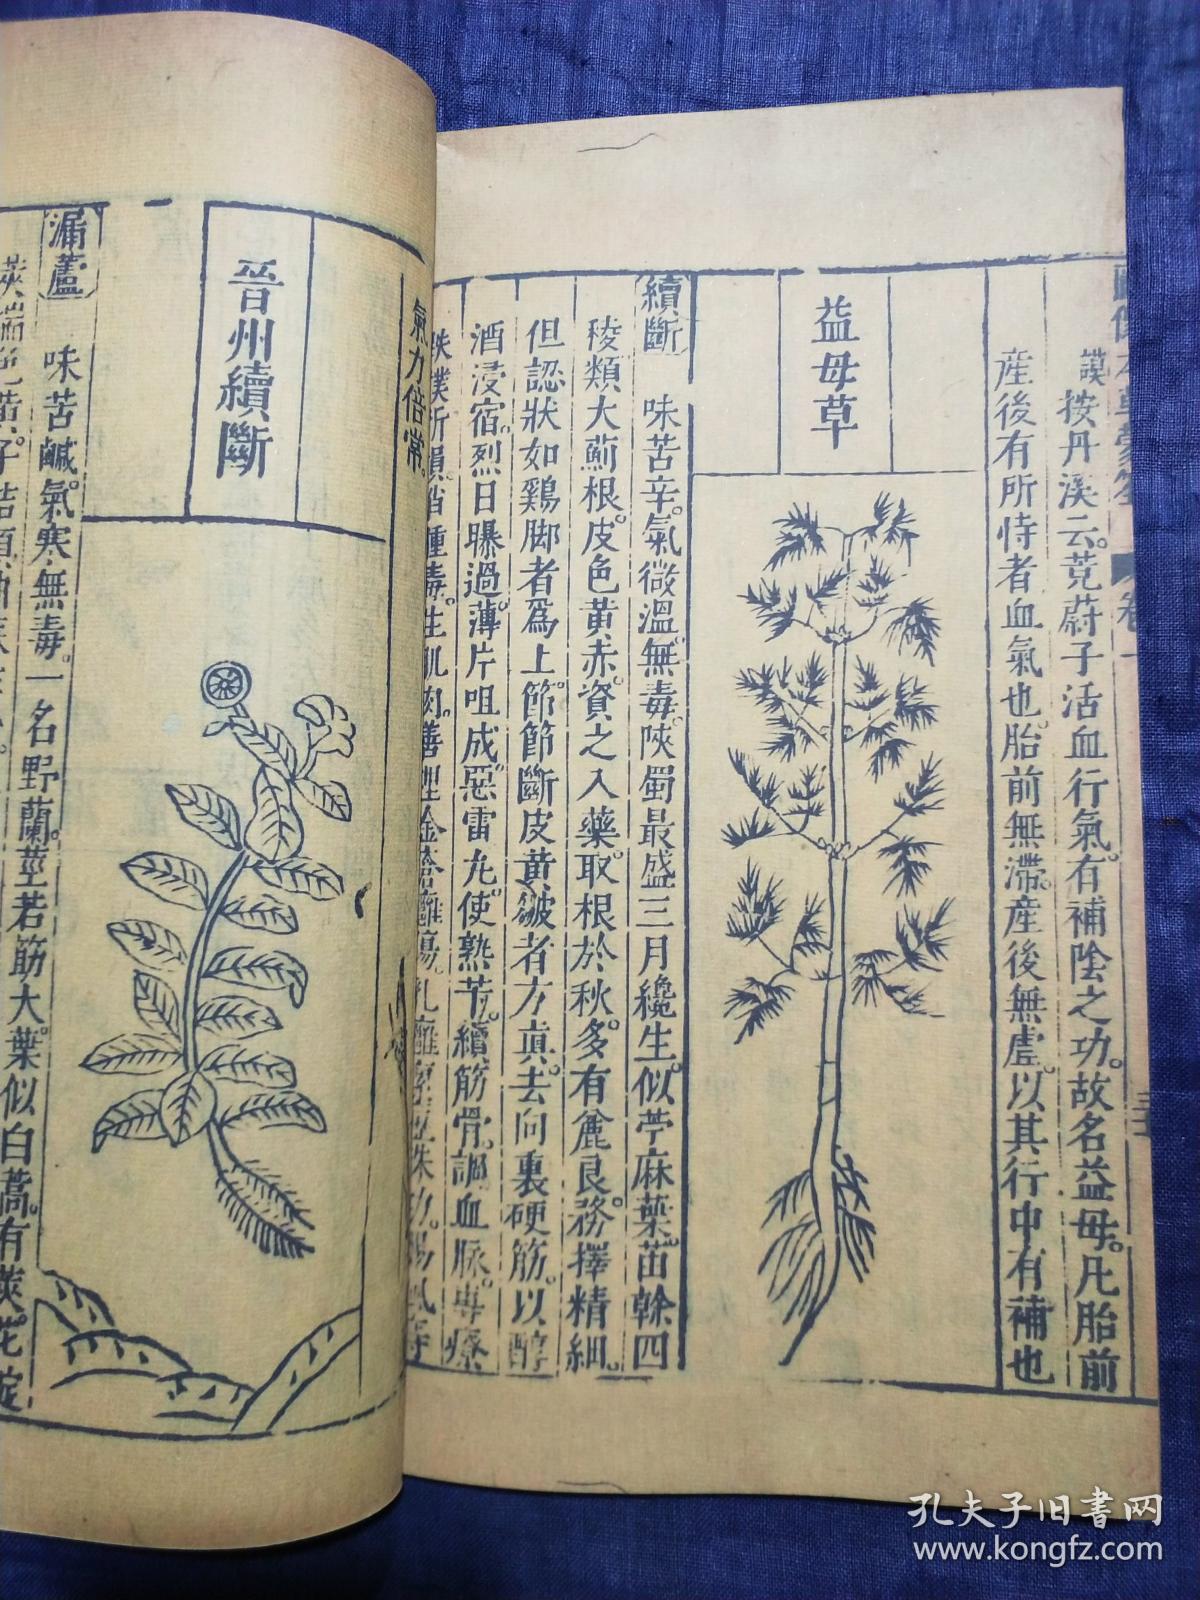 謨按丹溪云。茺蔚子活血行氣。有補陰之功。故名益母。凡胎前
産後有所恃者血氣也。胎前無滯。産後無虛。以其行中有補也
益母草
續斷 味苦辛。氣微溫。無毒。陝蜀最盛三月纔生。似苧麻葉。苗幹四
稜類大薊根。皮色黃赤。資之入藥。取根於秋。多有麄良。務擇精細。
但認狀如鷄脚者爲上。節節斷皮黃皺者方眞。去向裏硬筋。以醇
酒浸宿。烈日曝過。薄片咀成。惡雷丸。使熟芐。續筋骨。調血脉。專療
氣力倍常。
晉州續斷
漏蘆 味苦鹹。氣寒。無毒。一名野蘭。莖若筯大。葉似白蒿。有莢。花
孔夫子旧书网
www.kongfz.com